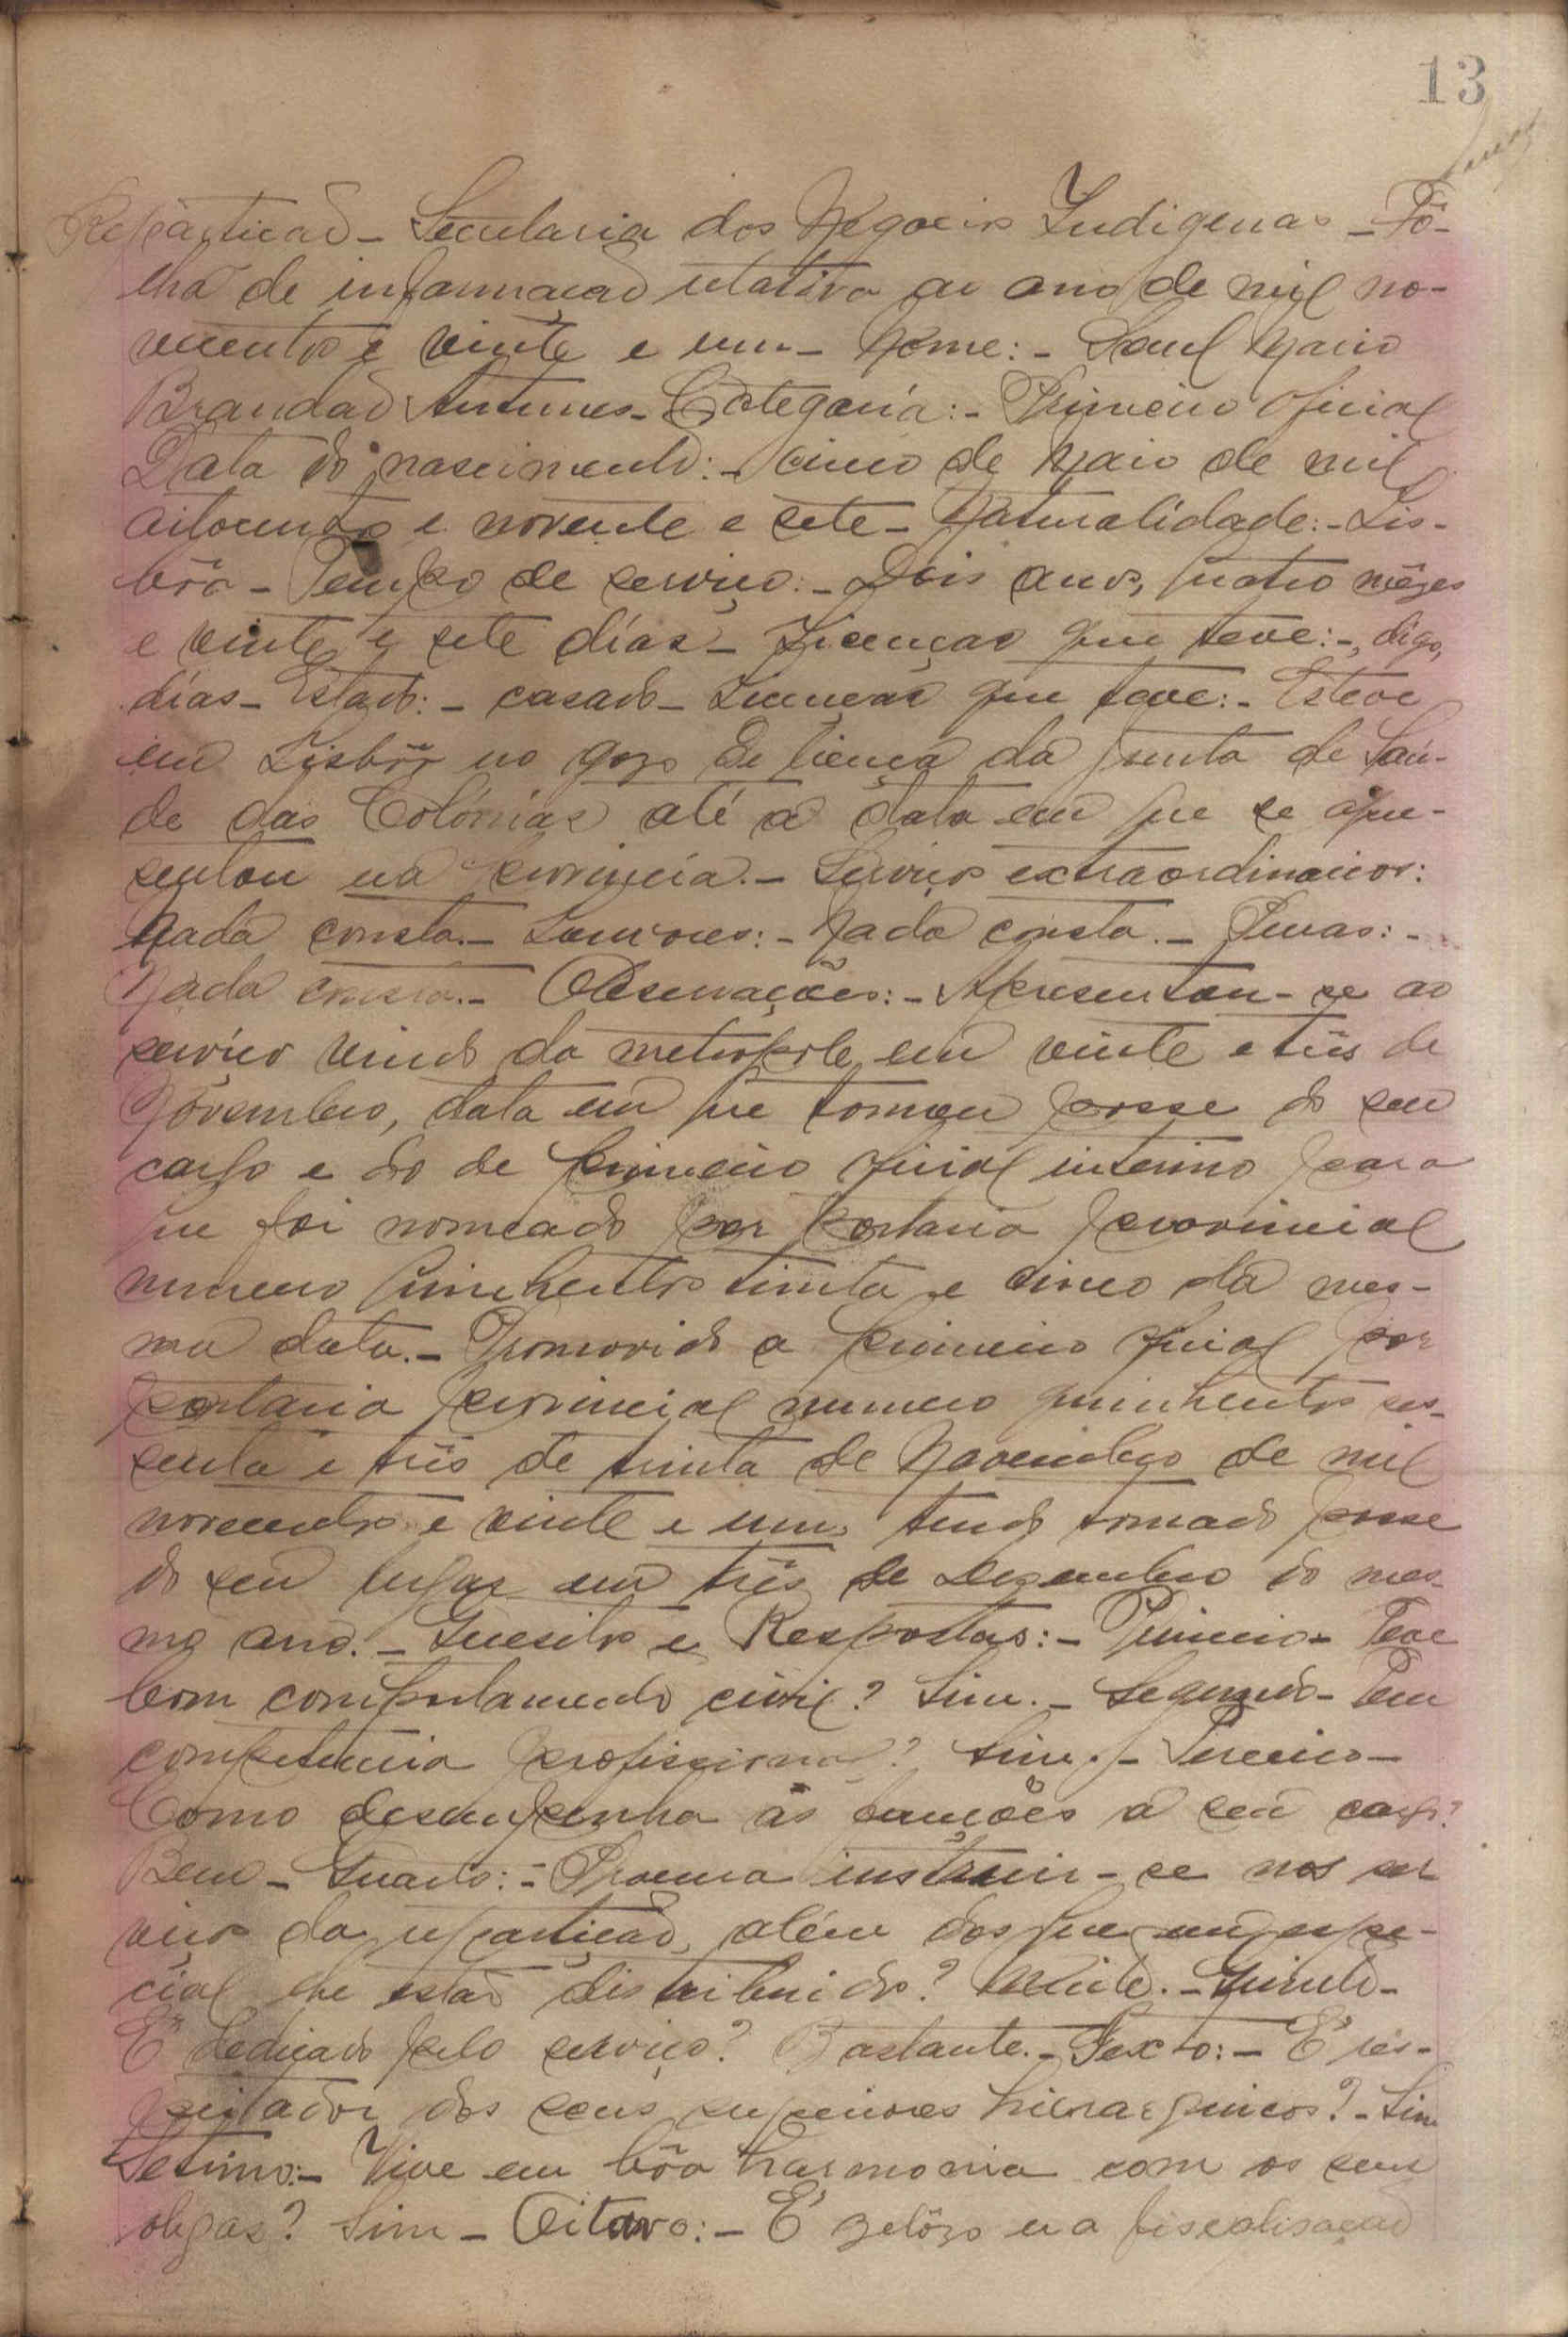 13
Repartição - Secretaria dos Negocios Indigenas - Fô-
lha de informação relativa ao ano de mil no-
vecentos e vinte e um - Nome: - Raul Mario
Brandão Antunes - Categoria: - Primeiro oficial
Data do nascimento: - cinco de Maio de mil
oitocentos e noventa e sete - Naturalidade: - Lis-
bôa - Tempo de serviço: - Dois anos, quatro mêzes
e vinte e sete dias - Licenças que teve: -, digo,
dias - Estado: - casado - Licenças que teve: - Esteve
em Lisbôa no gozo de licença da Junta de Saú-
de das Colónias até á data em que se apre-
sentou na provincia. - Serviços extraordinarios:
Nada consta. - Louvores: - Nada consta. - Penas: -
Nada consta. - Observações: - Apresentou-se ao
serviço vindo da metropole em vinte e três de
Novembro, data em que tomou posse do seu
cargo e do de primeiro oficial interino para
que foi nomeado por portaria provincial
numero quinhentos trinta e cinco da mes-
ma data. - Promovido a primeiro oficial por
portaria provincial numero quinhentos ses-
senta e três de trinta de Novembro de mil
novecentos e vinte e um, tendo tomado posse
do seu lugar em três de Dezembro do mes-
mo ano. - Quesitos e Respostas: - Primeiro - Teve
bom comportamento civil? Sim. - Segundo - Tem
competencia profissional? Sim. - Terceiro -
Como desempenha as funções a seu cargo?
Bem - Quarto: - Procura instruir-se nos ser
viços da repartição, além dos que em espe-
cial lhe estão distribuidos? Muito. - Quinto -
É dedicado pelo serviço? Bastante. - Sexto: - É res-
peitador dos seus superiores hierarquicos? - Sim
Setimo: - Vive em bôa harmonia com os seus
colegas? Sim - Oitavo: - É zelôzo na fiscalisação